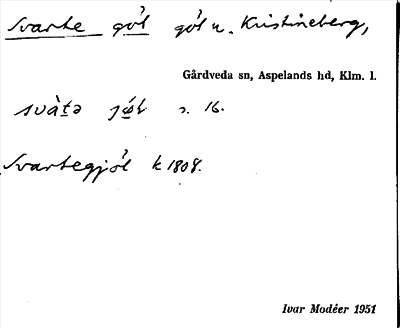 Svarte göl göl u. Kristineberg,
Gårdveda sn, Aspelands hd, Klm. l.
svàtə jǿl s. 16.
Svartegjöl k 1808.
Ivar Modéer 1951